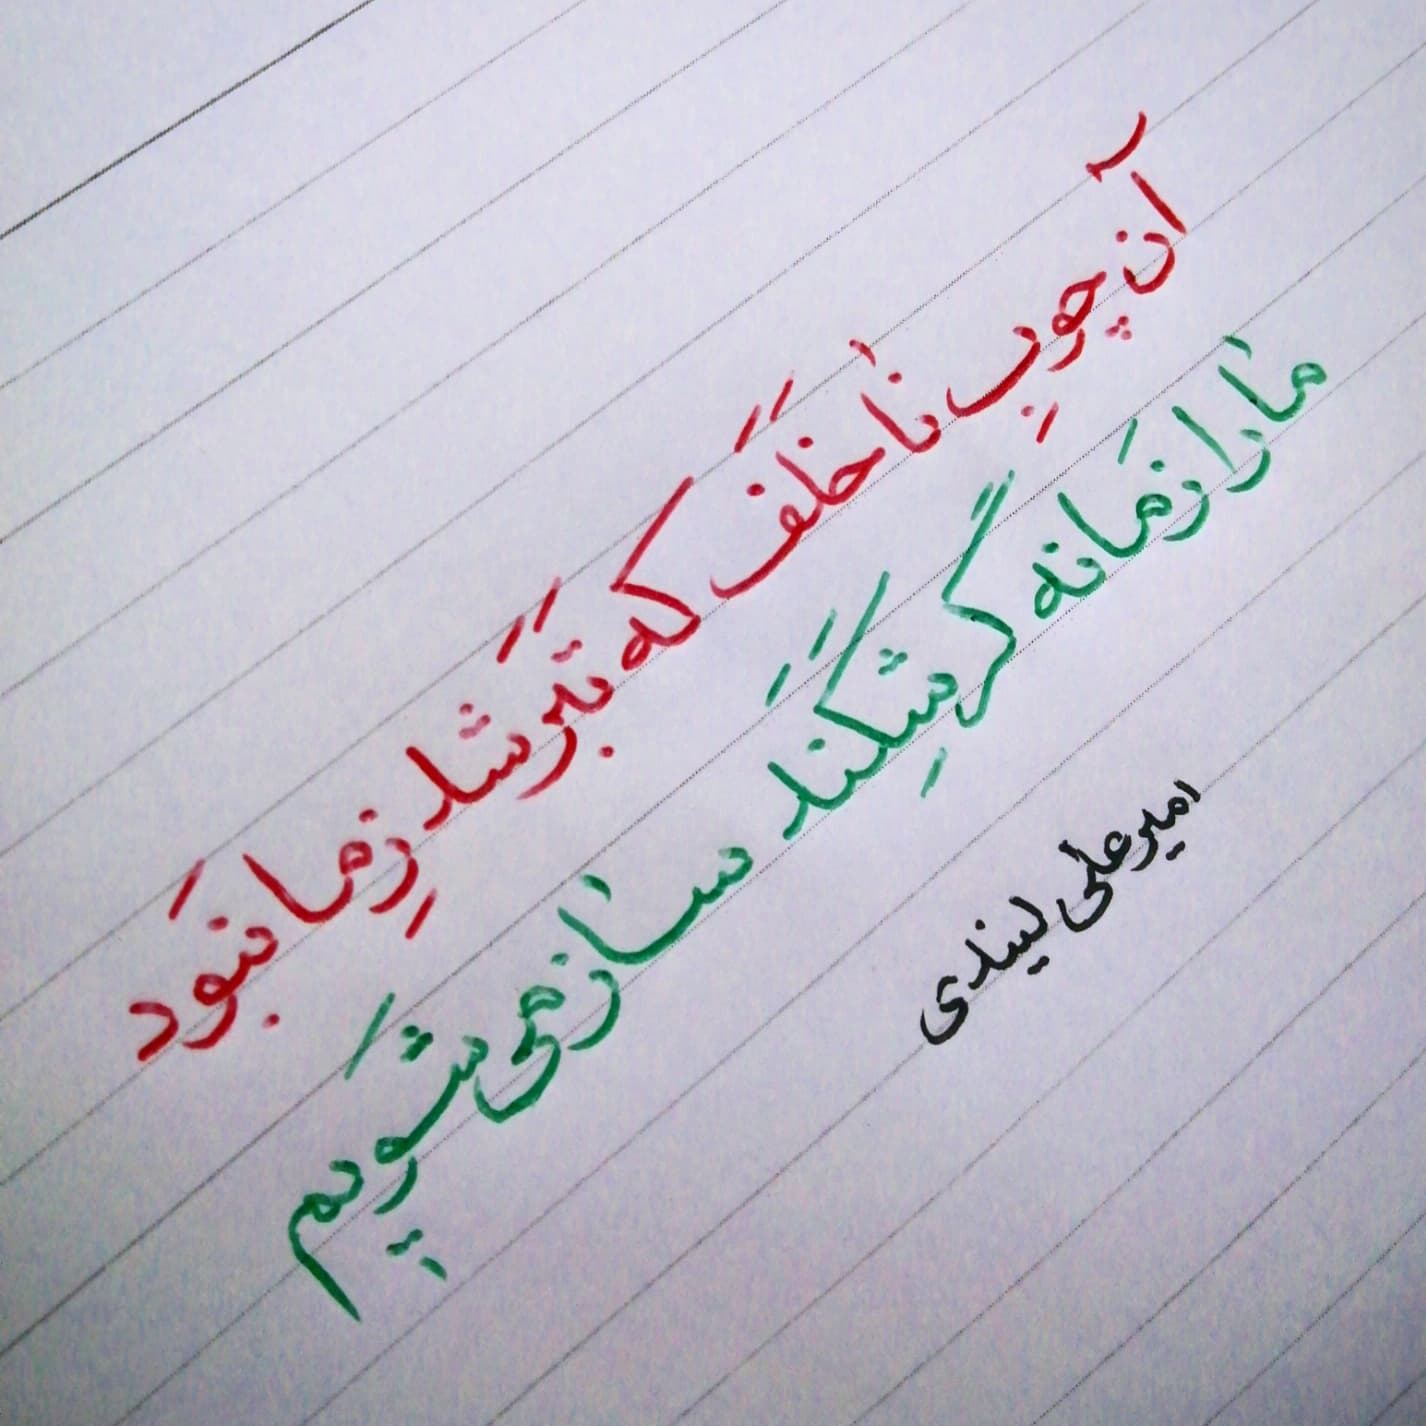 آن چوبِ ناخَلَف که تَبَر شد زِ ما نبَود
ما را زمَانه گر شِکَنَد ساز می شَویِم
امیرعلی لیندی